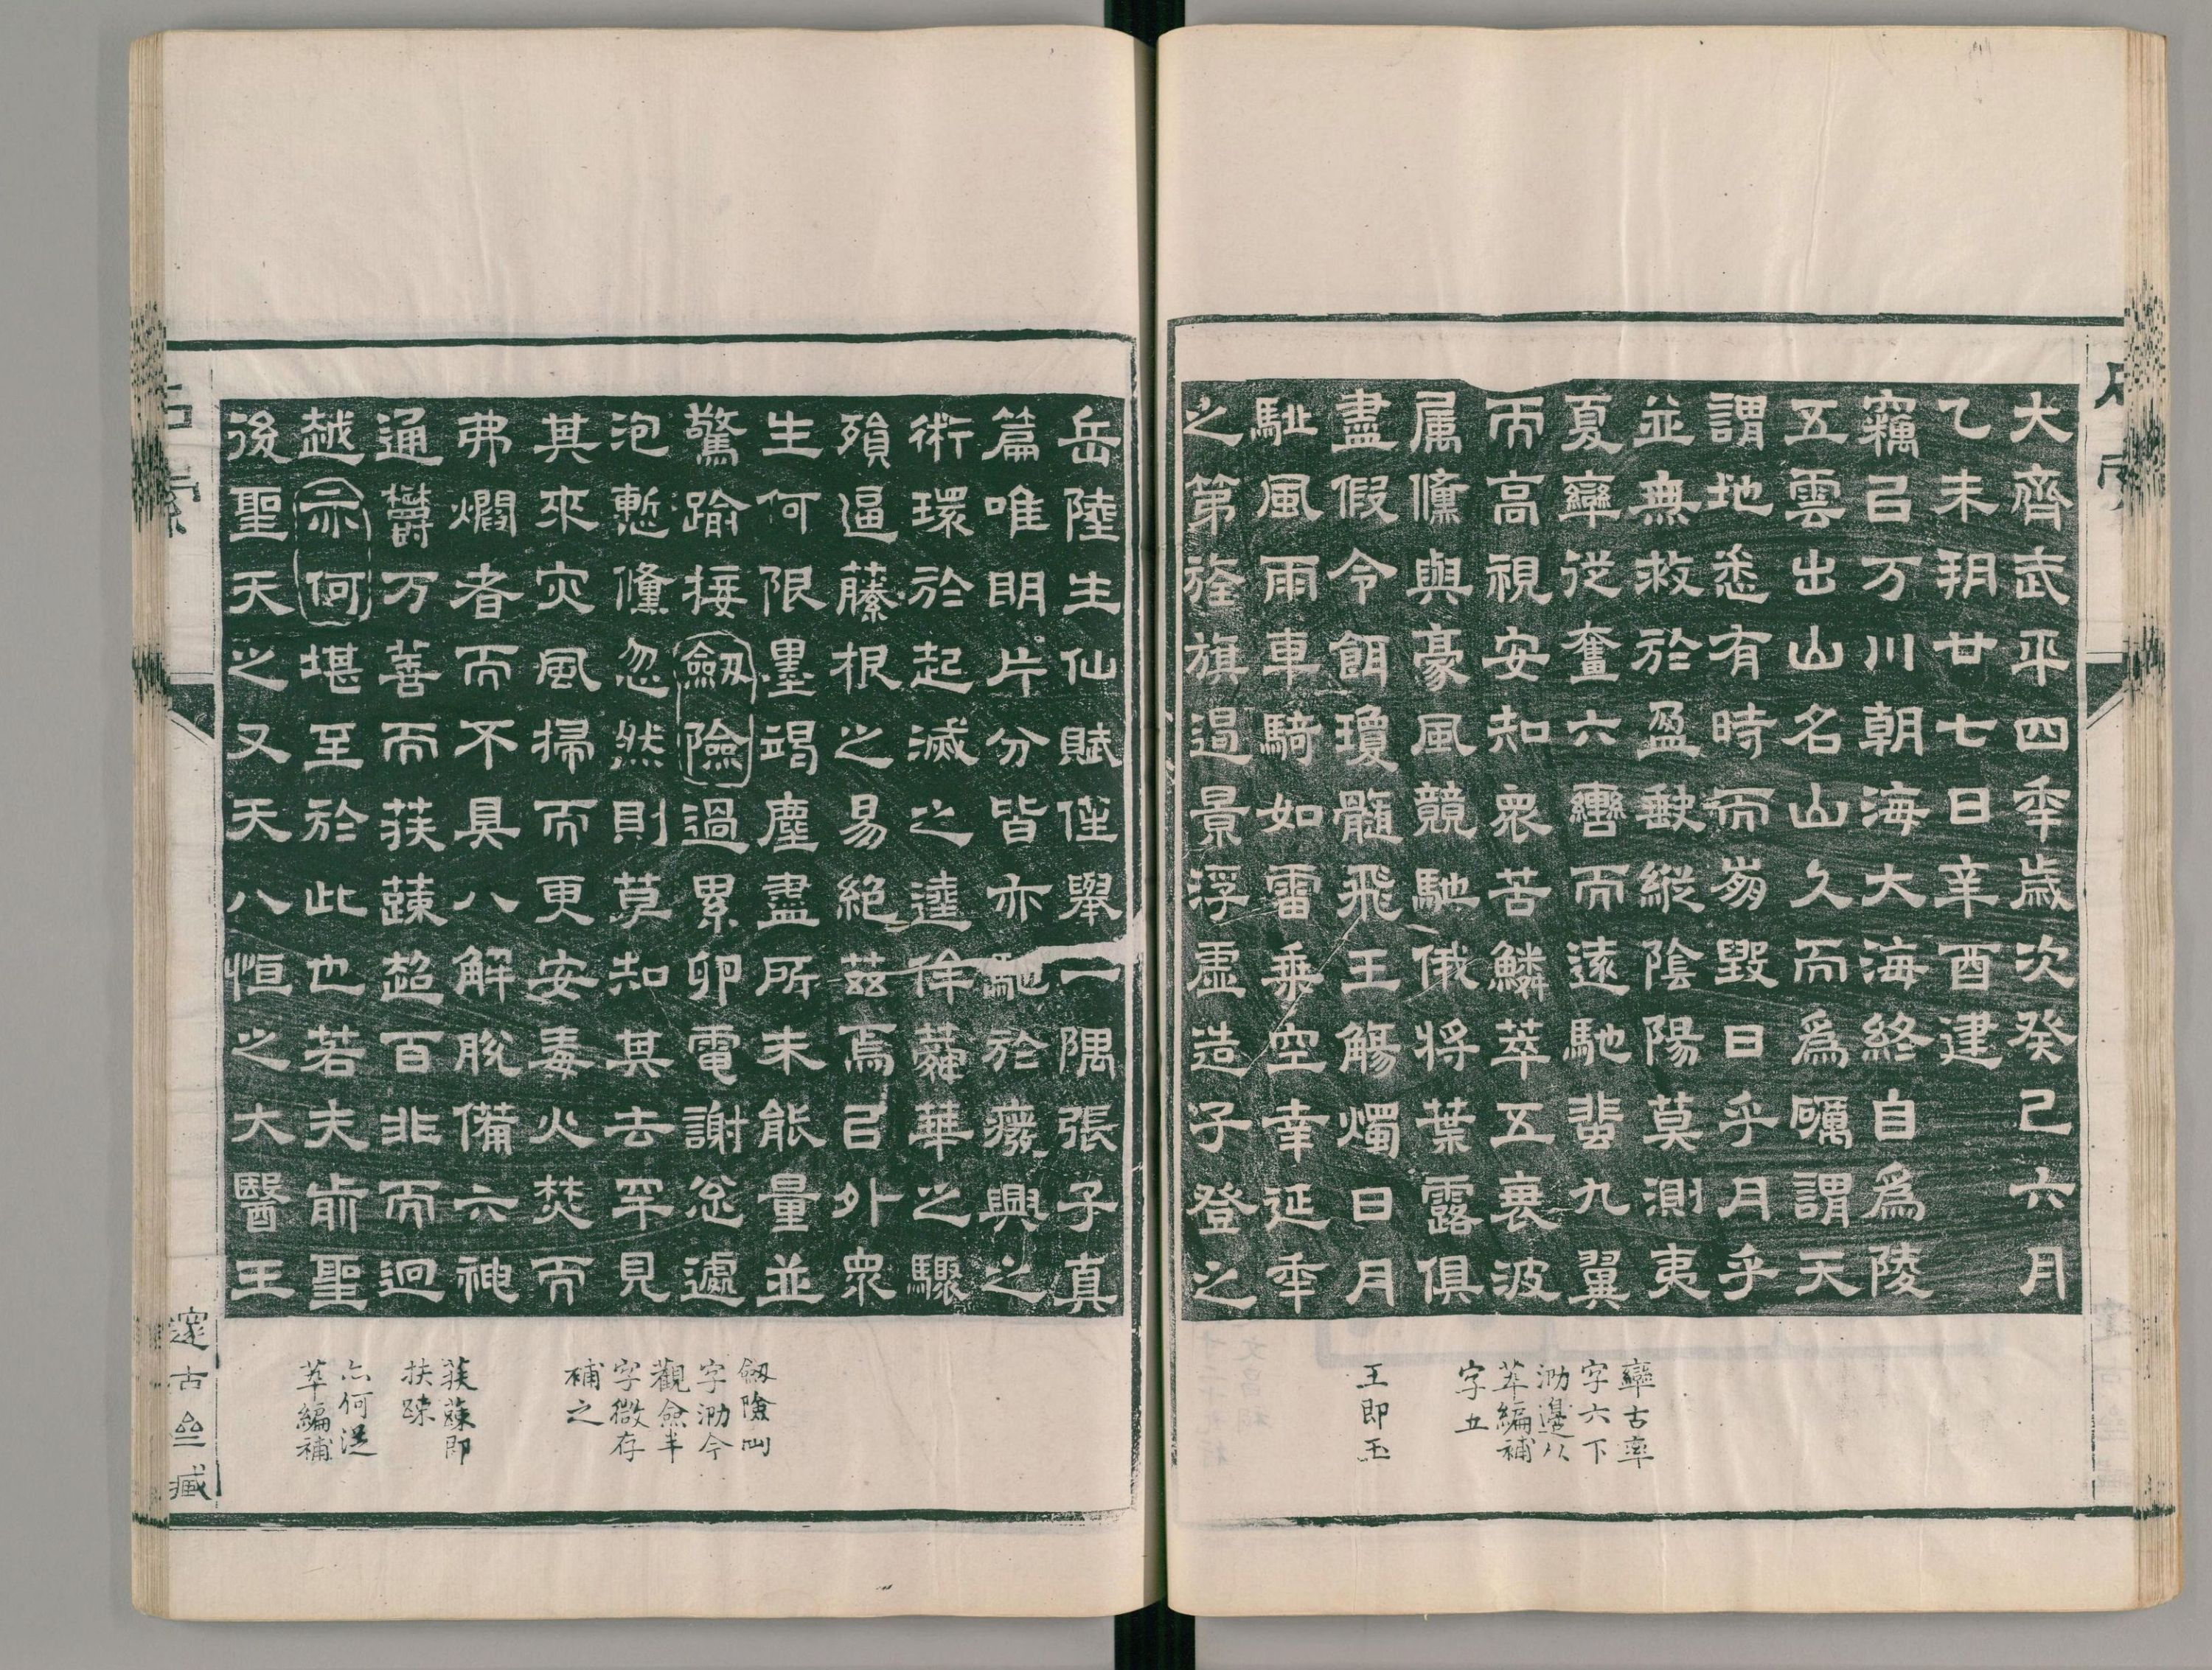 大齊武平四秊歲次癸巳六月
乙未朔廿七日辛酉建
竊㠯万川朝海大海終自爲陵
五雲出山名山久而爲礪謂天
謂地悉有時而崩毀日乎月乎
並無救於盈虧縱陰陽莫測夷
夏舝從奮六轡而遠馳蜚九翼
而高視安知眾苦鱗萃五衰波
属儵與豪風競馳俄將葉露俱
盡假令餌瓊髓飛王觴燭日月
駈風雨車騎如雷乗空幸延秊
之第旌旗過景浮虛造子登之
岳陸生仙賦僅舉一隅張子真
篇唯明片分皆亦馳於癈興之
術環於起滅之逵侔蕣華之驟
殞逼藤根之易絶茲焉㠯外眾
生何限墨竭塵盡所未能量並
驚踰接劒險過累卵電謝㤺遽
泡慙儵忽然則莫知其去罕見
其來灾風掃而更安毒火焚而
弗爛者而不具八解脫備六神
通欝万善而荴疎超百非而迥
越示何堪至於此也若夫歬聖
後聖天之又天八恒之大醫王
舝古牽
字六下
泐邊以
萃編補
字五
王即玉
劒險㓛
字泐今
觀僉半
字微存
補之
荴疎即
扶疎
亦何從
萃編補
邃古齋藏